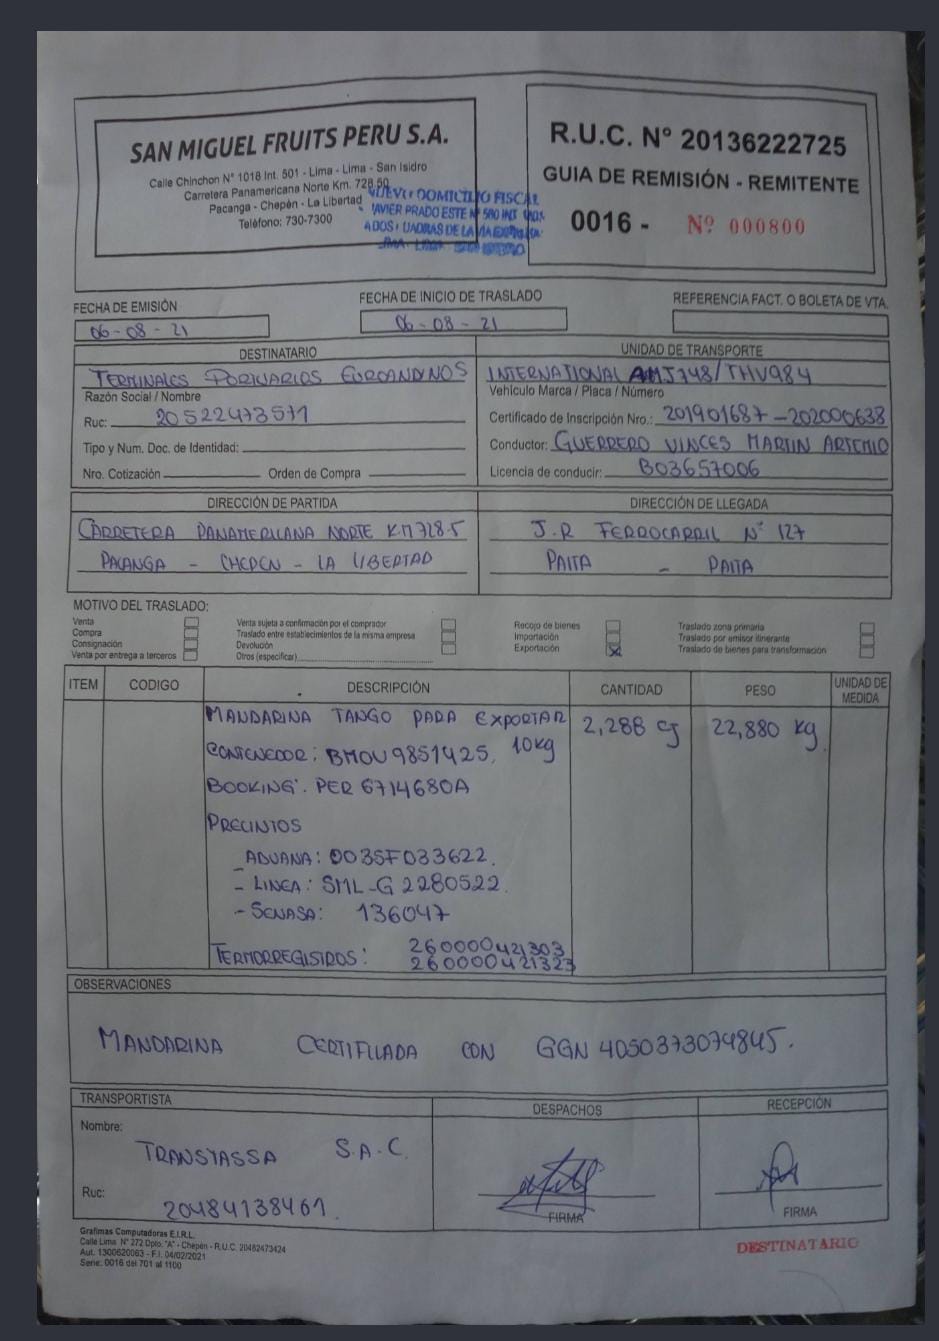 SAN MIGUEL FRUITS PERU S.A.
Calle Chinchon N° 1018 Int. 501 - Lima - Lima - San Isidro
Carretera Panamericana Norte Km. 728.50
Pacanga - Chepén - La Libertad
Teléfono: 730-7300
DOMICILIO FISCAL
JAVIER PRADO ESTE N° 560 INT
R.U.C. N° 20136222725
GUIA DE REMISIÓN - REMITENTE
0016 - Nº 000800
FECHA DE EMISIÓN
06-08-21
FECHA DE INICIO DE TRASLADO
06-08-21
REFERENCIA FACT. O BOLETA DE VTA.
DESTINATARIO
TERMINALES PORTUARIOS EUROANDINOS
Razón Social / Nombre
Ruc: 20522473571
Tipo y Num. Doc. de Identidad:
Nro. Cotización Orden de Compra
UNIDAD DE TRANSPORTE
INTERNATIONAL AMJ748/THV984
Vehículo Marca / Placa / Número
Certificado de Inscripción Nro.: 201901687-202000638
Conductor: GUERRERO VINCES MARTIN ARTEMIO
Licencia de conducir: B03657006
DIRECCIÓN DE PARTIDA
CARRETERA PANAMERICANA NORTE KM 728.5
PACANGA - CHEPEN - LA LIBERTAD
DIRECCIÓN DE LLEGADA
J.R FERROCARRIL N° 127
PAITA - PAITA
MOTIVO DEL TRASLADO:
Venta
Compra
Consignación
Venta por entrega a terceros
Venta sujeta a confirmación por el comprador
Traslado entre establecimientos de la misma empresa
Devolución
Otros (especificar)
Recojo de bienes
Importación
Exportación X
Traslado zona primaria
Traslado por emisor itinerante
Traslado de bienes para transformación
ITEM CODIGO DESCRIPCIÓN CANTIDAD PESO UNIDAD DE MEDIDA
MANDARINA TANGO PARA EXPORTAR 2,288 cj 22,880 kg
CONTENEDOR: BMOU9851425, 10kg
BOOKING: PER 6714680A
PRECINTOS
- ADUANA: 003SF033622.
- LINEA: SML-G 2280522.
- SENASA: 136047
TERMORREGISTROS: 260000421303
260000421323
OBSERVACIONES
MANDARINA CERTIFICADA CON GGN 4050373074845.
TRANSPORTISTA
Nombre:
TRANSTASSA S.A.C.
Ruc:
20484138461
DESPACHOS
FIRMA
RECEPCIÓN
FIRMA
Grafimas Computadoras E.I.R.L.
Calle Lima N° 272 Dpto. "A" - Chepén - R.U.C. 20482473424
Aut. 1300620063 - F.I. 04/02/2021
Serie: 0016 del 701 al 1100
DESTINATARIO